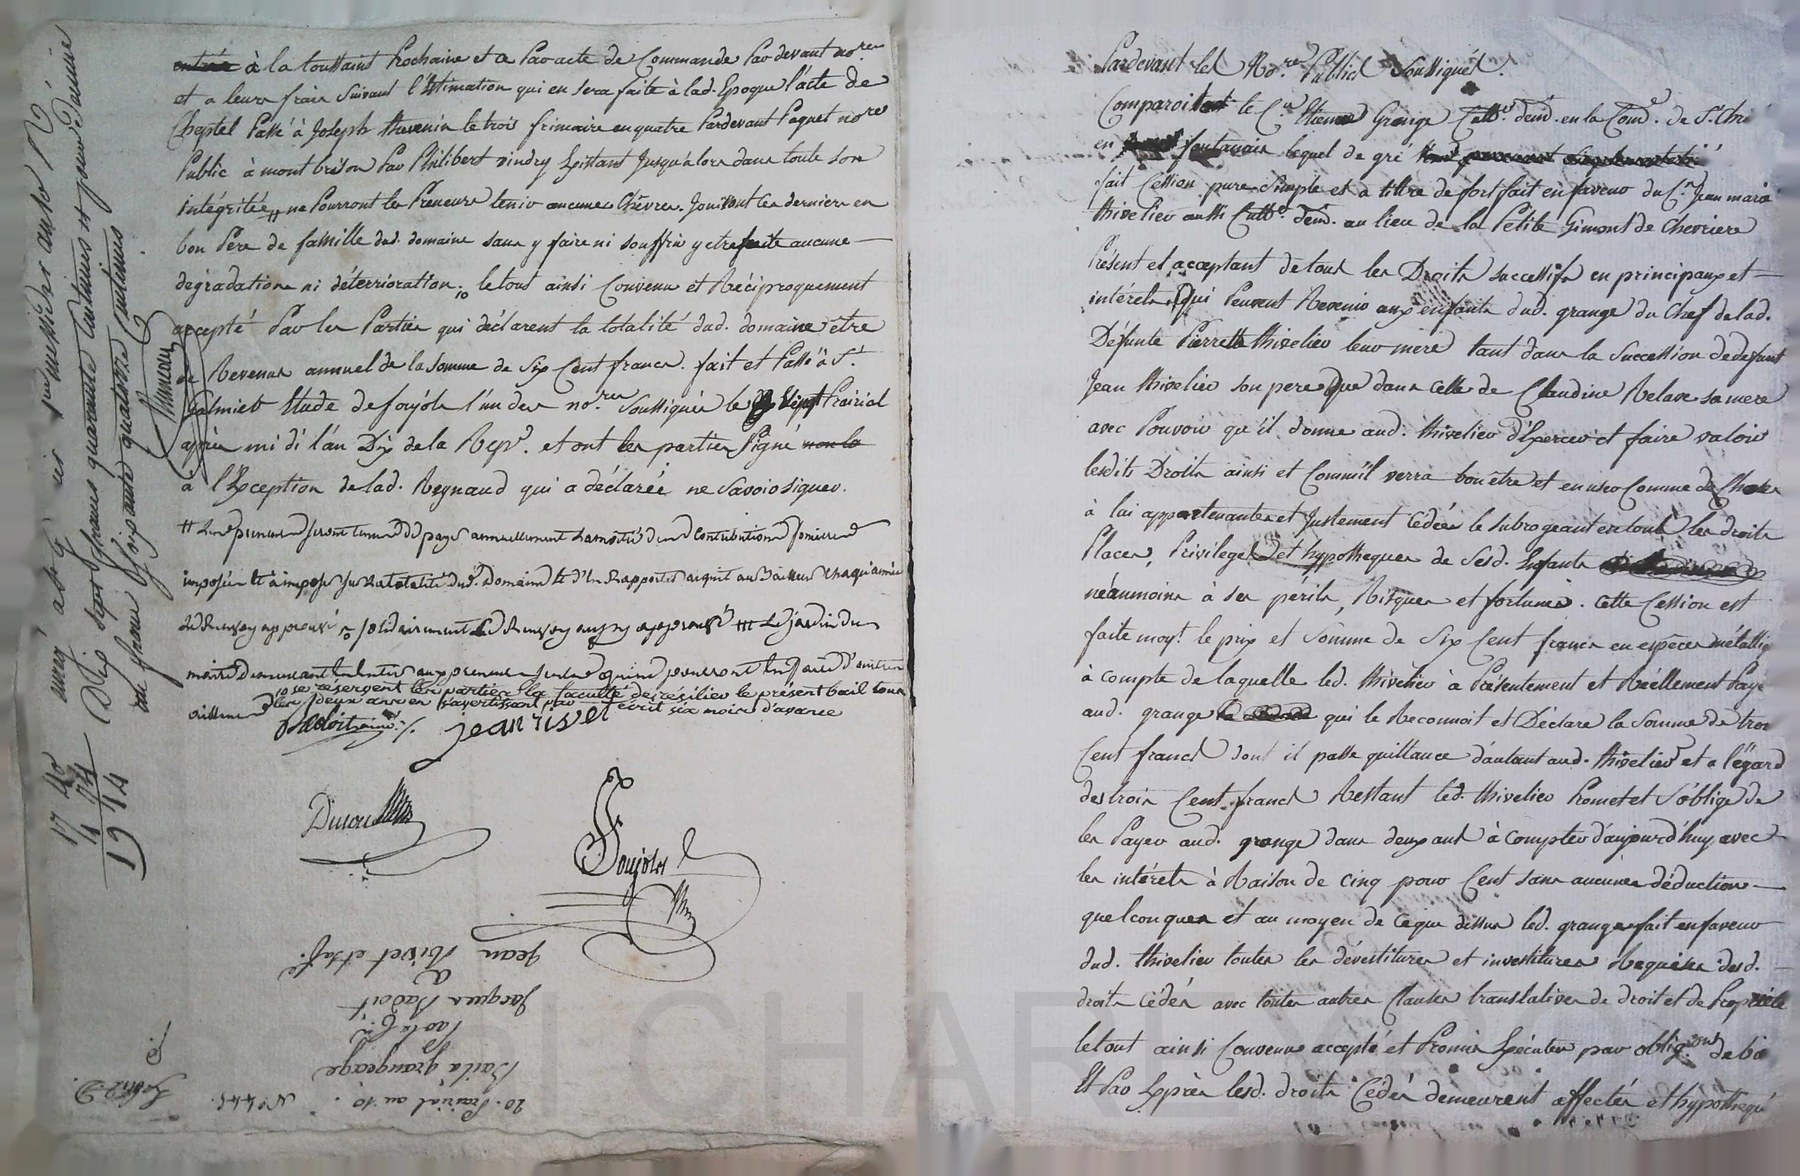 à la toussaint Prochaine et ce Par acte de Commande Par devant no.res
et a leurs frais Suivant l'Estimation qui en Sera faite à lad. Epoque l'acte de
Cheptel Passé à Joseph thevenin le trois frimaire an quatre Pardevant Paquet no.re
Public à montbrison Par Philibert vindry Existant Jusqu'alors dans toute Son
intégrité, ne Pourront les Preneurs tenir aucunes Chèvres. Jouiront ces derniers en
bon Père de famille dud. domaine sans y faire ni souffrir y etre faite aucune
dégradations ni déterrioration. le tout ainsi Convenu et Réciproquement
accepté Par les Parties qui déclarent la totalité dud. domaine être
de Revenus annuel de la Somme de Six Cent francs. fait et Passé à S.t
Galmier Etude de foujols l'un des no.res Soussignés le vingt Prairial
après midi l'an Dix de la Rep. et ont les parties Signé
à l'Exception de lad. Reynaud qui a déclarée ne Savoir signer.
Les preneurs seront tenus de payer annuellement la moitié des Contributions foncieres
imposées et à imposer sur la totalité dud. Domaine et d'en Rapporter acquit au Bailleur chaqu'année
le Renvoy approuvé solidairement le Renvoy aussy approuvé le jardin du
se réservent les parties la faculté de résilier le présent bail tous
les deux ans en s'avertissant par écrit six mois d'avance
jean rivet
Foujols
Jean Rivet et sa f.
à
Jacques Badoit
Bail à grangeage
20. Prairial an 10.
17 40
1 74
19 14
Pardevant les No.res Publics Soussignés.
Comparoit le C.n Etienne Grange Cult.r dem. en la Com.e de S.t Chri
en fontanais lequel de gré
fait Cession pure Simple et a tittre de fort fait en faveur du C.n Jean marie
thivelier aussi Cult.r dem. au lieu de la Petite Gimond de Chevriere
Présent et acceptant de tous les Droits successifs en principaux et
intérêts, Qui Peuvent Revenir aux enfants dud. grange du Chef de lad.
Défunte Pierrette thivelier leur mere tant dans la Succession de defunt
Jean thivelier son pere Que dans celle de Claudine Relave sa mere
avec Pouvoir qu'il donne aud. thivelier d'Exercer et faire valoir
lesdits Droits ainsi et Comm'il verra bon être et en user Comme de Choses
à lui appartenantes et Justement Cédées le subrogeant en tous les droits
Places, Privileges et hypotheques de Sesd. Enfants
néanmoins à ses périls, Risques et fortunes. Cette Cession est
faite moy.t le prix et Somme de Six Cent francs en espèces métalliq
à compte de laquelle led. thivelier à Présentement et Réellement Payé
aud. grange qui le Reconnoit et Déclare la Somme de trois
Cent francs dont il passe quittance d'autant aud. thivelier et a l'égard
des trois Cent francs Restant led. thivelier Promet et S'oblige de
les Payer aud. grange dans deux ans à compter d'aujourd'huy avec
les intérêts à Raison de cinq pour Cent sans aucunes déductions
quelconques et au moyen de ce que dessus led. grange fait en faveur
dud. thivelier toutes les dévestitures et investitures Requises desd.
droits cédés avec toutes autres Clauses translatives de droit et de Propriété
le tout ainsi Convenu accepté et Promis Exécuter par oblig.ons de bi
Et Par Exprès lesd. droits Cédés demeurent affectés et hypothequé